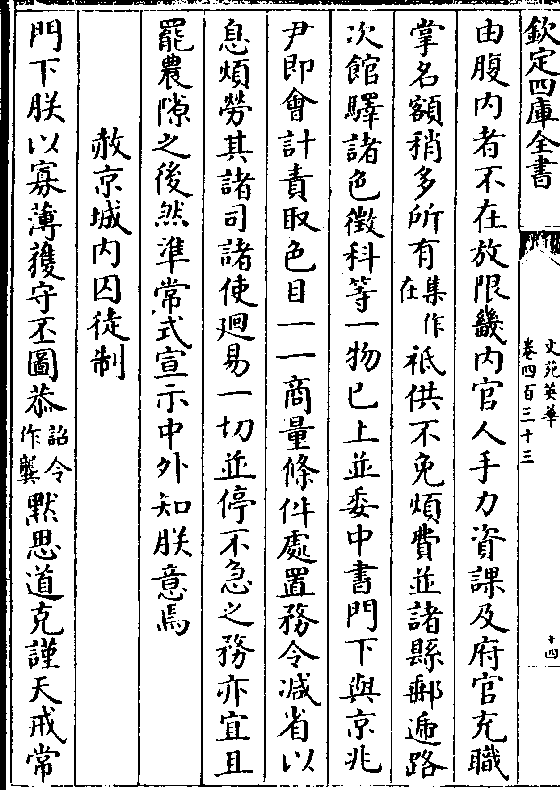 欽定四庫全書
文苑英華
卷四百三十三
十四
由腹内者不在放限畿内官人手力資課及府官充職
掌名額稍多所有集作在祗供不免煩費並諸縣郵遞路
次館驛諸色徵科等一物已上並委中書門下與京兆
尹即會計責取色目一一商量條件處置務令減省以
息煩勞其諸司諸使迴易一切並停不急之務亦宜且
罷農隙之後然準常式宣示中外知朕意焉
赦京城内囚徒制
門下朕以寡薄獲守丕圖恭詔令作龔默思道克謹天戒常